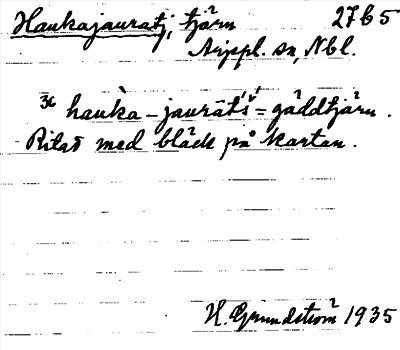 Haukajauratj, tjärn 27b5
Arjepl. sn, Nbl.
36 hauka - jaurātś = gäddtjärn.
Ritas med bläck på kartan.
H. Grundström 1935